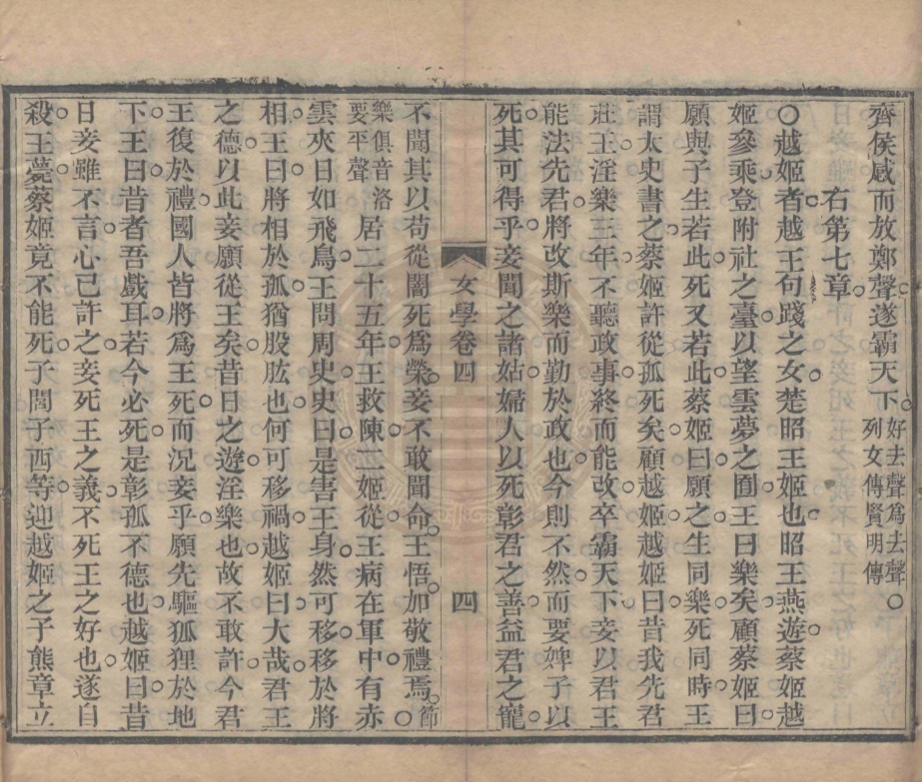 齊侯感而放鄭聲遂霸天下好去聲為去聲○列女傳賢明傳
右第七章
○越姬者越王句踐之女楚昭王姬也昭王燕遊蔡姬越
姬參乘登附社之臺以望雲夢之囿王曰樂矣顧蔡姬曰
願與子生若此死又若此蔡姬曰願之生同樂死同時王
謂太史書之蔡姬許從孤死矣顧越姬越姬曰昔我先君
莊王淫樂三年不聽政事終而能改卒霸天下妾以君王
能法先君將改斯樂而勤於政也今則不然而要婢子以
死其可得乎妾聞之諸姑婦人以死彰君之善益君之寵
女學卷四
四
不聞其以苟從闇死為榮妾不敢聞命王悟加敬禮焉○節
樂俱音洛要平聲居二十五年王救陳二姬從王病在軍中有赤
雲夾日如飛鳥王問周史史曰是害王身然可移移於將
相王曰將相於孤猶股肱也何可移禍越姬曰大哉君王
之德以此妾願從王矣昔日之遊淫樂也故不敢許今君
王復於禮國人皆將為王死而況妾乎願先驅狐狸於地
下王曰昔者吾戲耳若今必死是彰孤不德也越姬曰昔
日妾雖不言心已許之妾死王之義不死王之好也遂自
殺王薨蔡姬竟不能死子閭子西等迎越姬之子熊章立